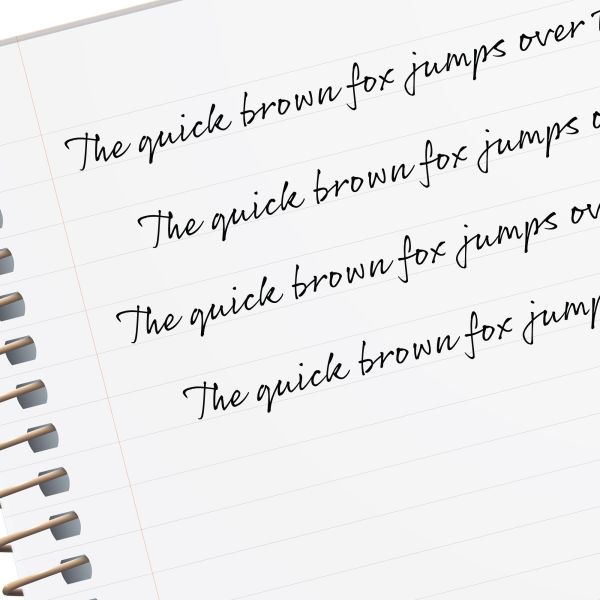 The quick brown fox jumps over
The quick brown fox jumps
The quick brown fox jumps
The quick brown fox